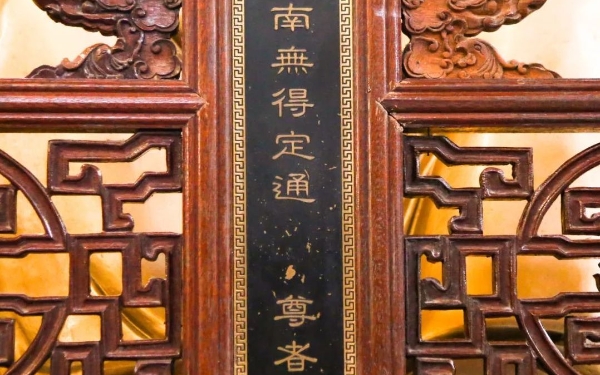 南無得定通尊者